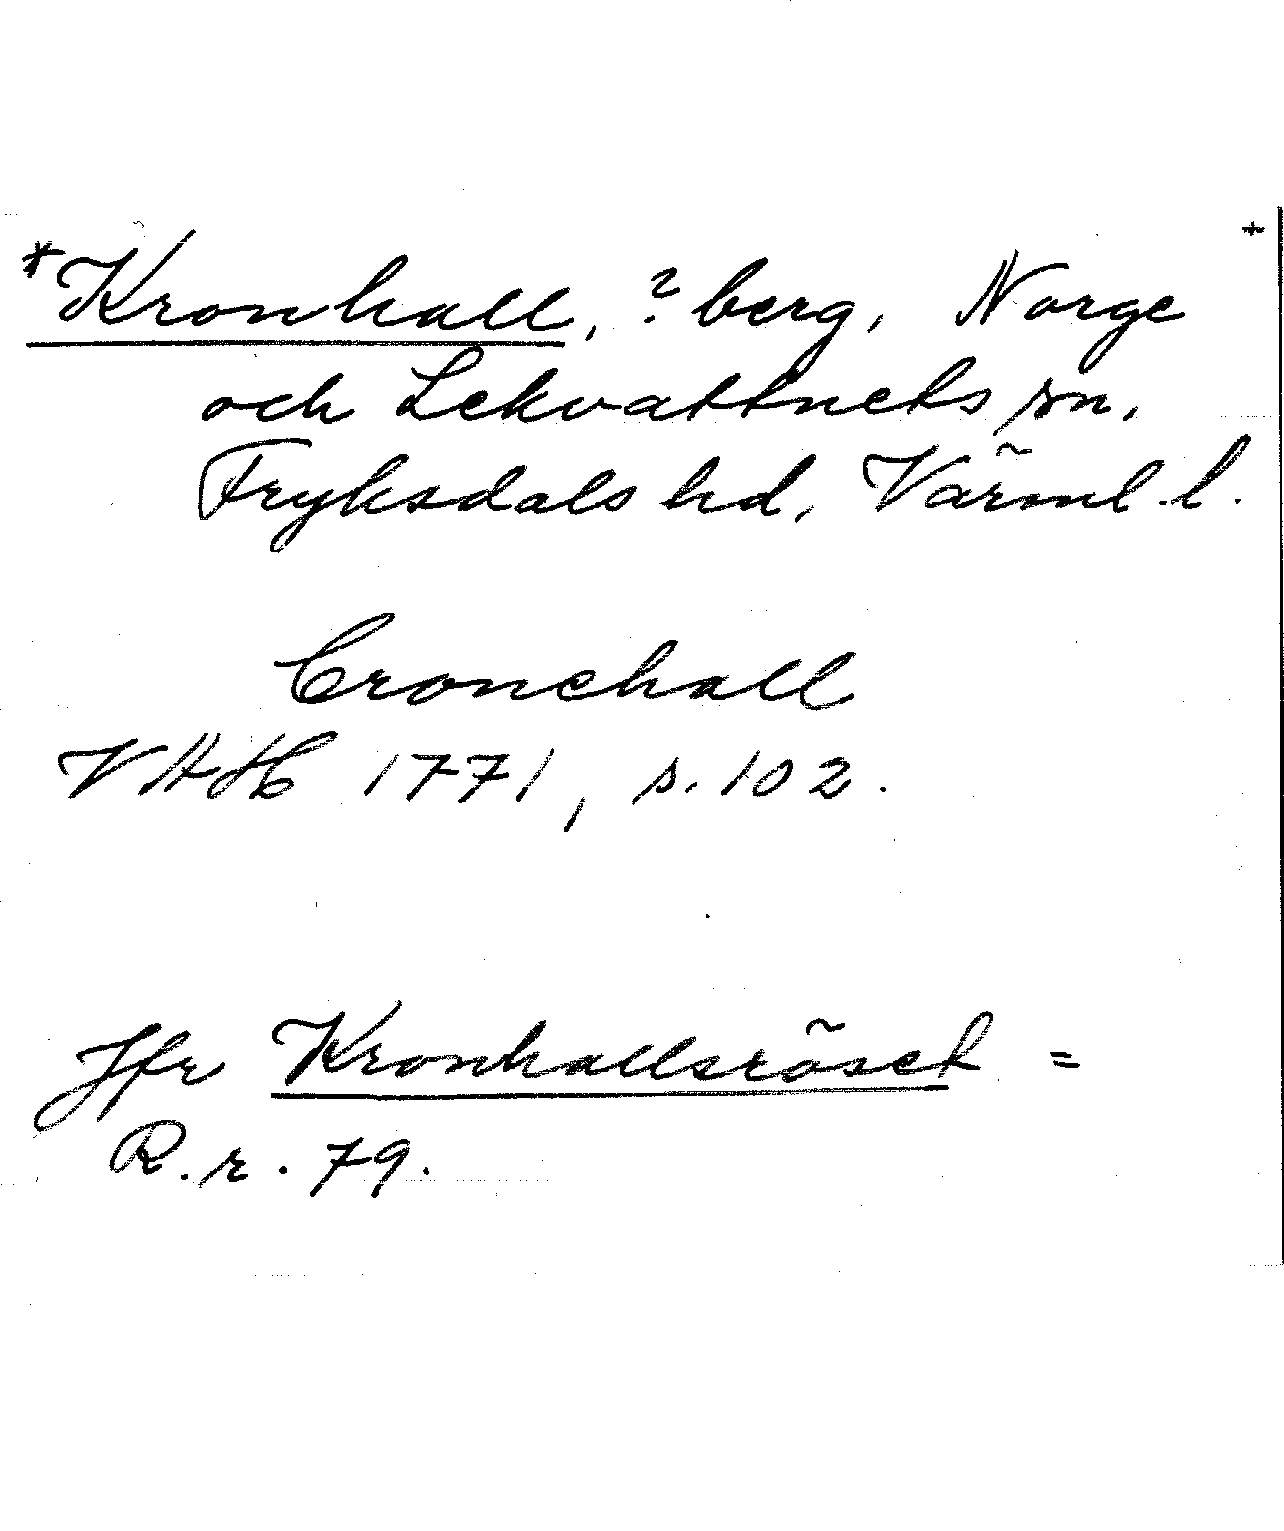 *Kronhall, ? berg, Norge +
och Lekvattnets sn,
Fryksdals hd, Värml. l.
Cronehall
VAH 1771, s. 102.
Jfr Kronhallsröset =
R.r. 79.